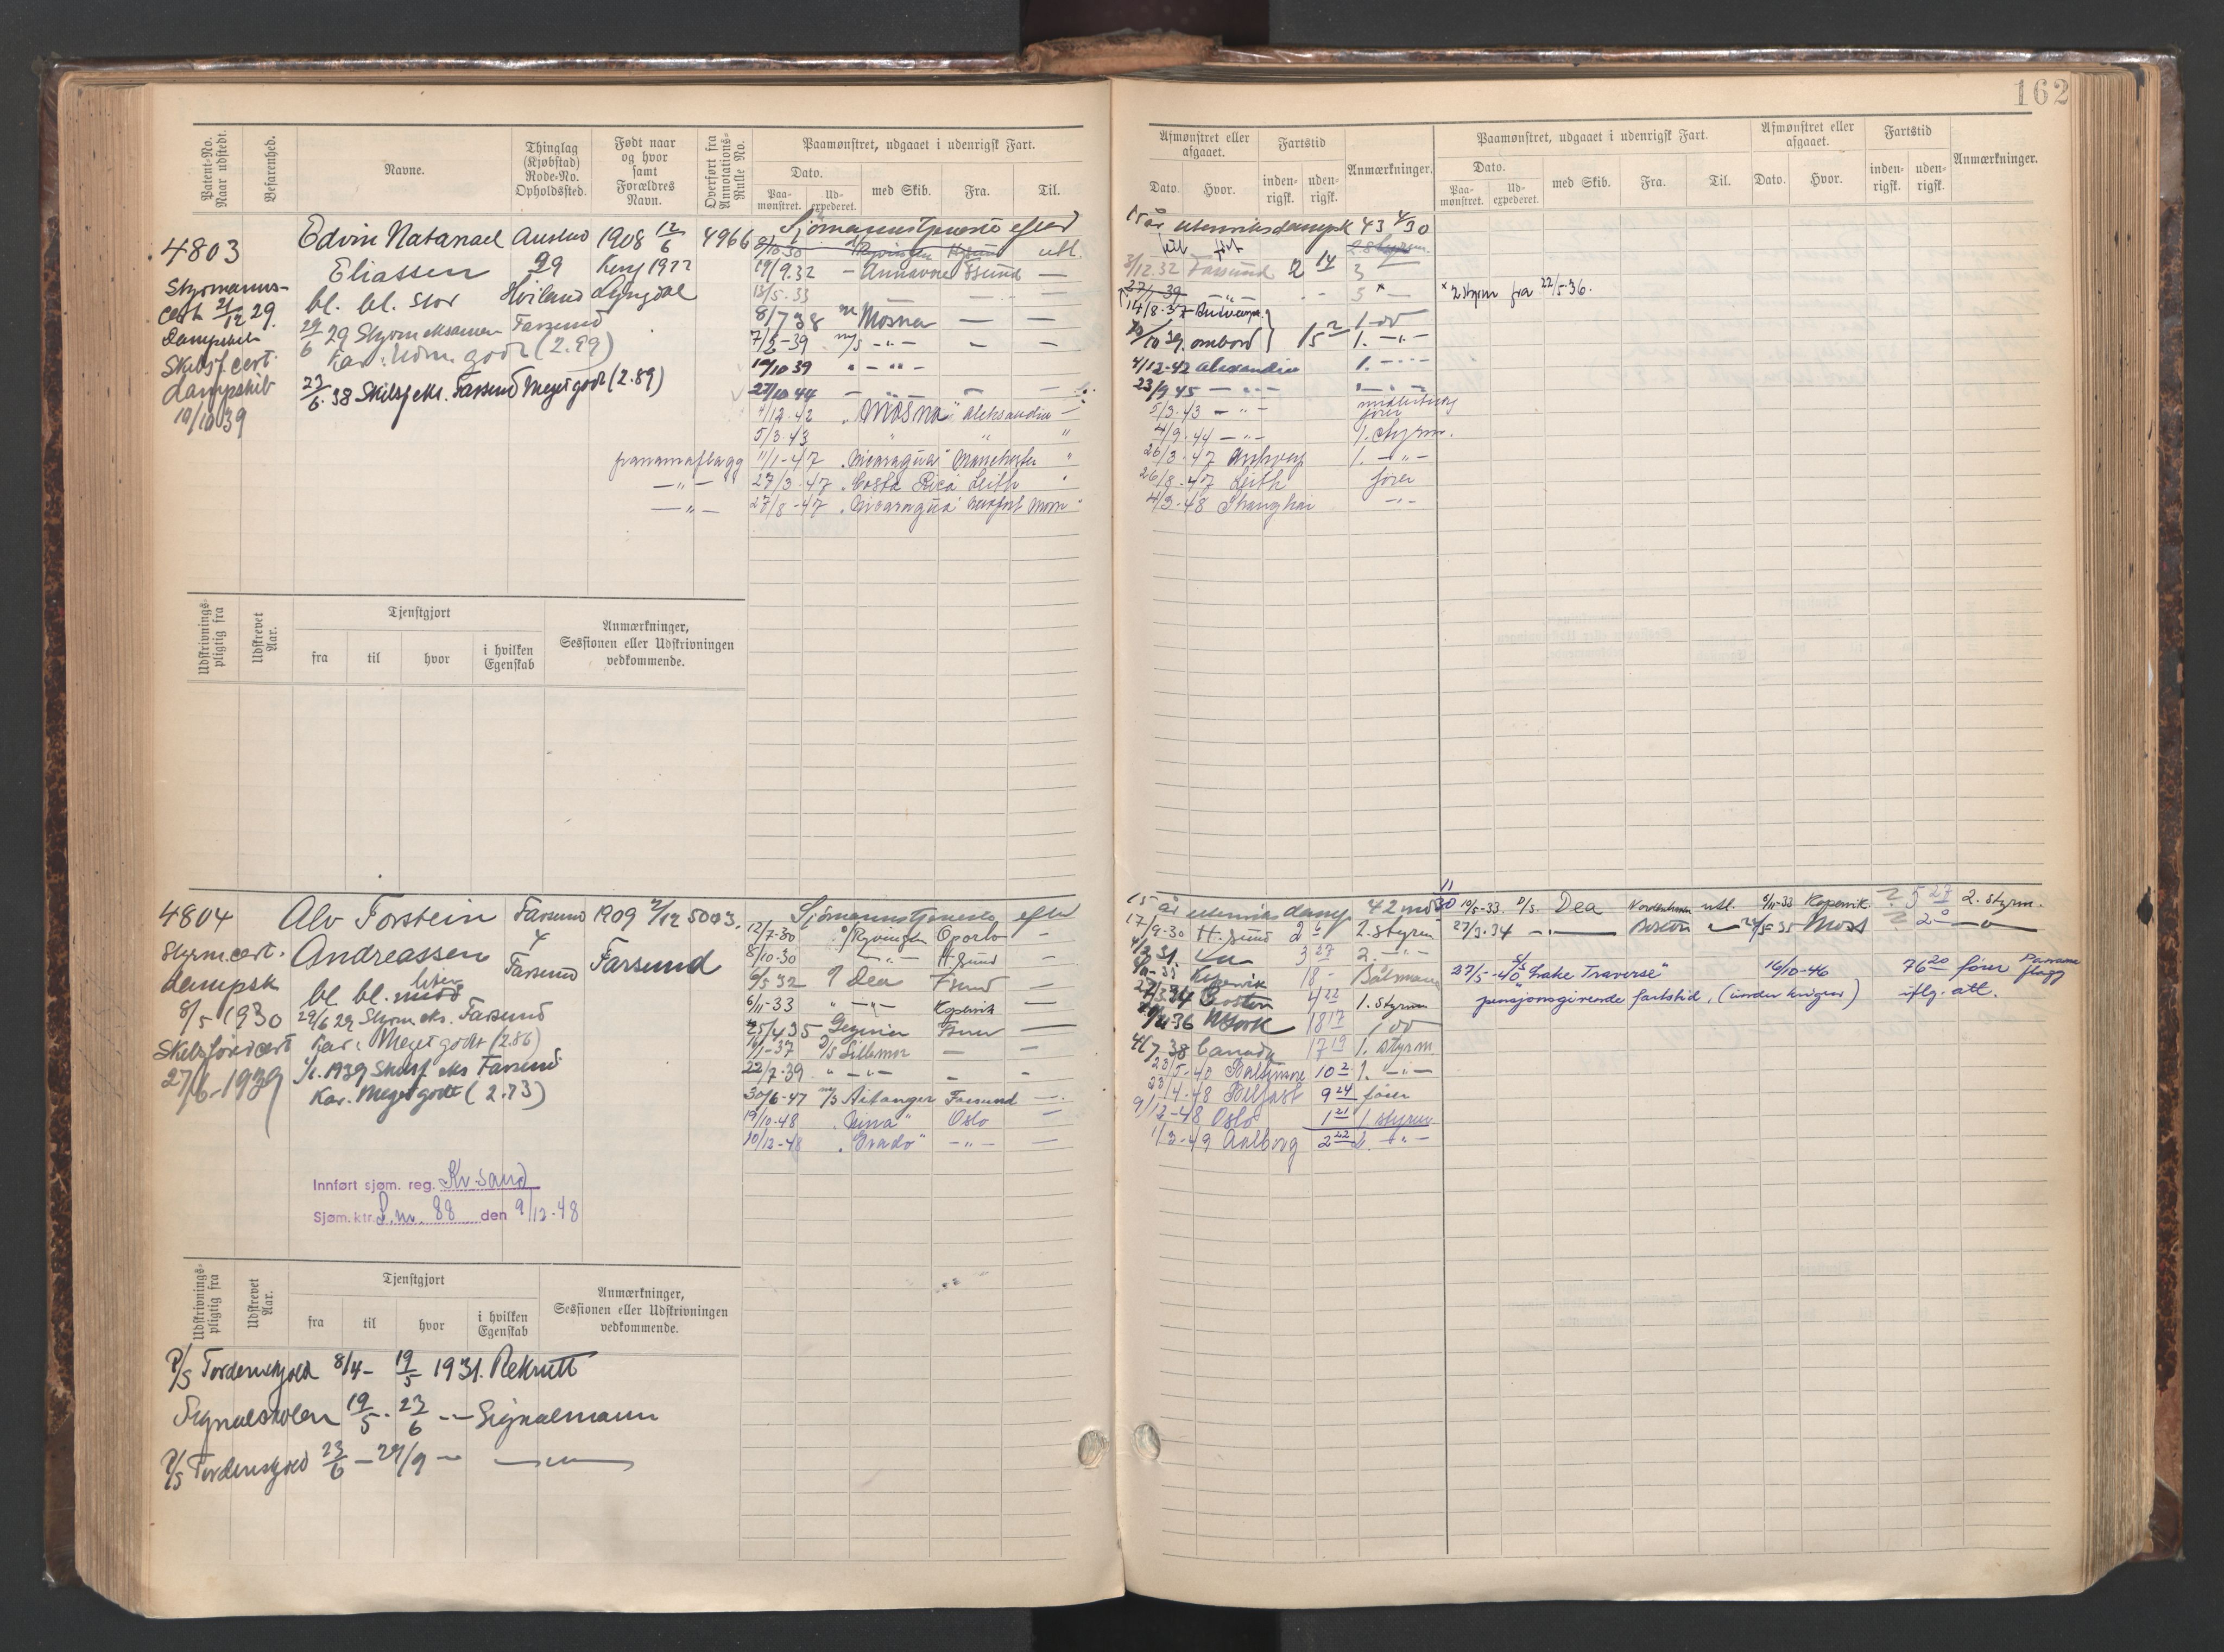 162
Patent-No.
Naar udstedt.
Befarenhed.
Navne.
Thinglag
(Kjøbstad)
Rode-No.
Opholdssted.
Født naar
og hvor
samt
Forældres
Navn.
Overført fra
Annotations-
Rulle No.
Paamønstret, udgaaet i udenrigsk Fart.
Dato.
Paa-
mønstret.
Ud-
expederet.
med Skib.
Fra.
Til.
Afmønstret eller
afgaaet.
Dato
Hvor.
Fartstid
inden-
rigsk.
uden-
rigsk.
Anmærkninger.
Paamønstret, udgaaet i udenrigsk Fart.
Dato.
Paa-
mønstret.
Ud-
expederet.
med Skib.
Fra.
Til.
Afmønstret eller
afgaaet.
Dato.
Hvor.
Fartstid
inden-
rigsk.
uden-
rigsk.
Anmærkninger.
4803
Styrmanns-
cert. 21/12 29.
Dampskib
Skibsf. cert.
Dampskib
10/10 39
Edvin Natanael
Eliassen
bl. bl. stor
29/6 29 Styrm eksamen Farsund
23/6. 38 Skibsf eks. Farsund Meget godt (2.89)
Austad
29
1908 12/6
Lyngdal
4966
Sjømannstjeneste efter
8/10 30 Ryvingen utl.
19/9.32 - Annavore Fsund —
13/5-33 — — —
8/7 38 Mosna — —
7/2-39 m/s -"- — —
10/10 39 " - " -
27/10 44 — — —
4/12.42 "Mosna" Aleksandria —
5/3.43 " " "
panamaflagg 11/1-47 "Nicaragua" Manchester "
—"— 27/3.47 "Costa Rica Leith "
—"— 27/8-47 "Nicaragua"
15 år utenriksdampsk 43 4/30
3/12.32 Farsund 2 14 3 —
27/1-39 —"—
14/8.37
ombord
4/12-42 Alexandria 1. - - -
23/9 45 — " —
5/3.43 — " — fører
4/9.44 — " — 1. styrm.
26/3-47 Antwerp 1. — " —
26/8-47 Leith fører
4/3-48 Shanghai — " —
x 2 styrm fra 22/5-36.
Udskrivnings-
pligtig fra
Udskrevet
Aar.
Tjenstgjort
fra
til
hvor
i hvilken
Egenskab
Anmærkninger,
Sessionen eller Udskrivningen
vedkommende.
4804
Styrm.cert.
dampsk
8/5 1930
Skibsførercert
27/6-1939
Alv Torstein
Andreassen
bl bl. liten
29/6 29 Styrm eks. Farsund
Kar. Meget godt (2.86)
1/6. 1939 Skibsf eks Farsund
Kar. Meget godt (2.73)
Farsund
4
Farsund
1909 2/12
Farsund
5003.
Sjømannstjeneste efter
12/7-30 Ryvingen Oporto —
8/10-30 — " — H.sund —
9/5 32 Dea Fsund —
6/11-33 " —"— Kopervik
25/4 35 —
11/1-37 D/S Lillemor — —
22/7-39 " — " — — -
30/6-47 m/s Aitanger Farsund —.
19/10-48 "Nina" Oslo —
10/12-48 "Grado" —"— —
15 år utenriks damp. 42 md 11/30
17/9-30 H.sund 2. styrm
4/12 31. 3 27 2. — " —
Kopervik 18 - Båtsmann
Boston 4 22 1. Styrm
36 N York 18 17
4/7 38 Canada 17 19 1. styrm
23/5-40 Baltimore 10 2 1. —"—
23/4-48 Belfast 9 24 fører
9/12-48 Oslo 1 21 1. styrm
1/3-49 Aalborg 2 22 1. — " —
19/5-33. D/S. Dea utl. 6/11-33 Kopervik ? 5 27 2. styrm.
27/3.34 —"— Boston Moss ? 2 0
27/5-40 S/S "Lake Traverse" 16/10-46 76 20 fører Panama flagg
pensjonsgivende fartstid, (under krigen) iflg. att.
Innført sjøm. reg. Kr.sand
Sjøm. ktr. L.nr. 88 den 9/12-48
Udskrivnings-
pligtig fra
Udskrevet
Aar.
Tjenstgjort
fra
til
hvor
i hvilken
Egenskab
Anmærkninger,
Sessionen eller Udskrivningen
vedkommende.
P/S Tordenskjold 8/4 – 19/5 1931. Rekrutt
Signalskolen 19/5 - 23/6 -"- Signalmann
P/S Tordenskjold 23/6 — 29/9 — —"—